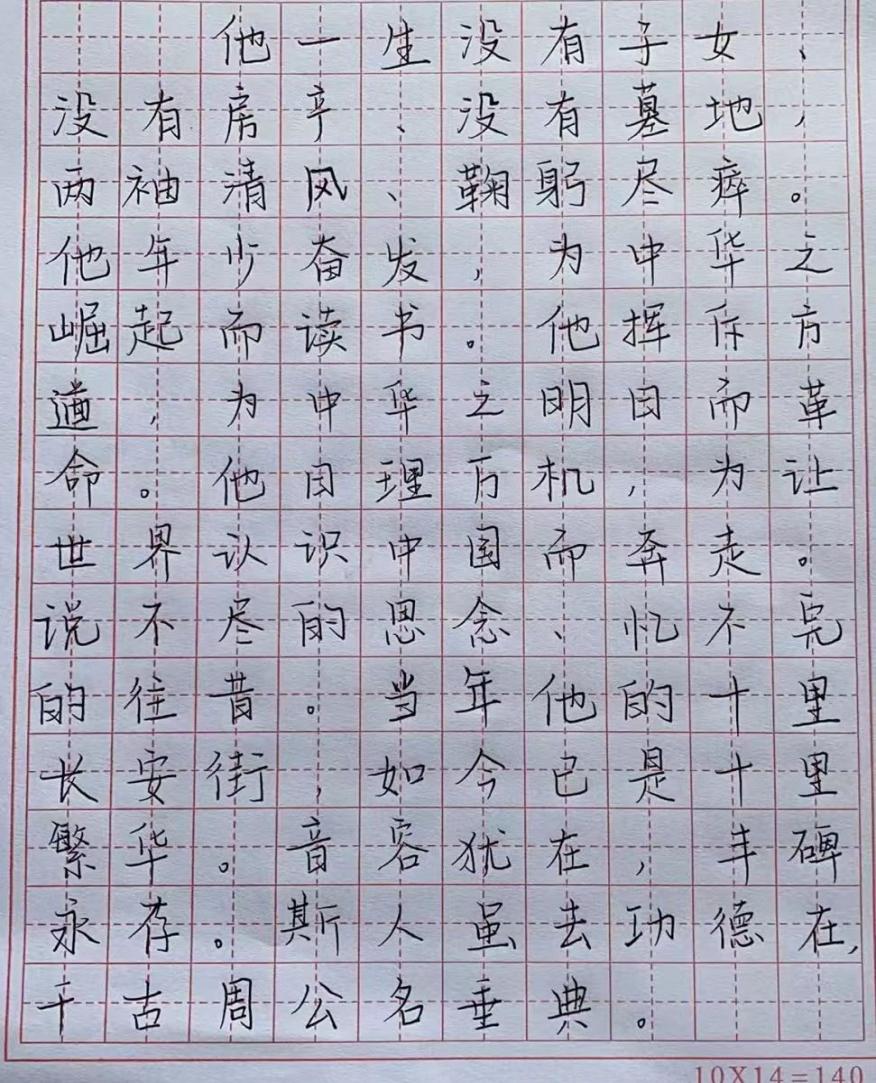 他一生没有子女、
没有房产、没有墓地，
两袖清风、鞠躬尽瘁。
他年少奋发，为中华之
崛起而读书。他挥斥方
遒，为中华之明日而革
命。他日理万机，为让
世界认识中国而奔走。
说不尽的思念、忆不完
的往昔。当年他的十里
长安街，如今已是十里
繁华。音容犹在，丰碑
永存。斯人虽去功德在，
千古周公名垂典。
10X14=140